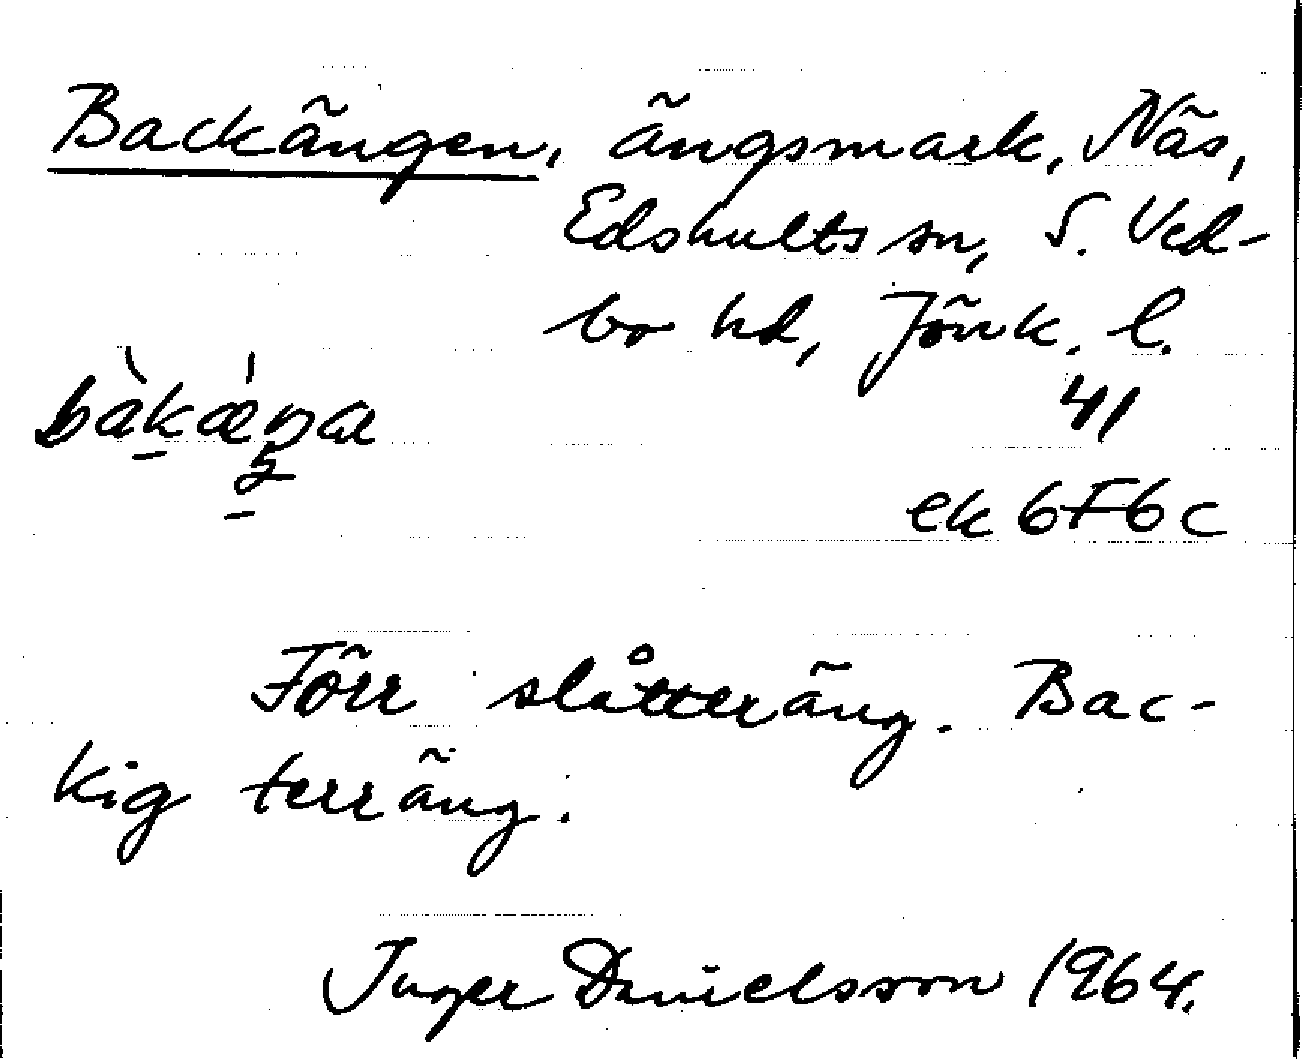 Backängen, ängsmark, Näs,
Edshults sn, S. Ved-
bo hd, Jönk. l.
bàkæ̀ŋa
41
ek 6F6c
Förr slåtteräng. Bac-
kig terräng.
Inger Danielsson 1964.